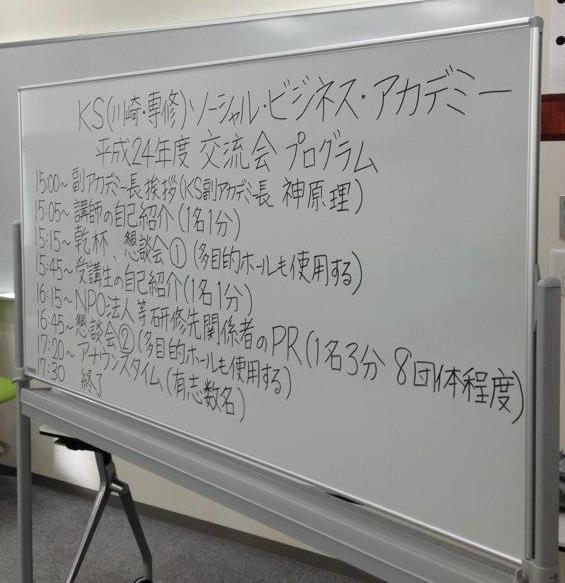 KS(川崎・専修)ソーシャル・ビジネス・アカデミー
平成24年度 交流会 プログラム
15:00~ 副アカデミー長挨拶(KS副アカデミー長 神原理)
15:05~ 講師の自己紹介(1名1分)
15:15~ 乾杯、懇談会①(多目的ホールも使用する)
15:45~ 受講生の自己紹介(1名1分)
16:15~ NPO法人等研修先関係者のPR(1名3分 8団体程度)
16:45~ 懇談会②(多目的ホールも使用する)
17:20~ アナウンスタイム(有志数名)
17:30 終了